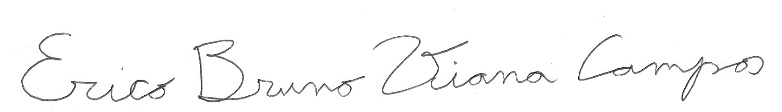 Erico Bruno Viana Campos